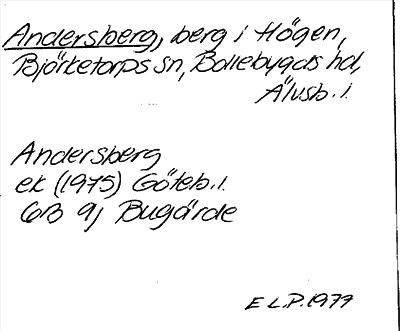 Andersberg, berg i Högen,
Björketorps sn, Bollebygds hd,
Älvsb. l.
Andersberg
ek (1975) Göteb. l.
6B 9j Bugärde
E L.P. 1979